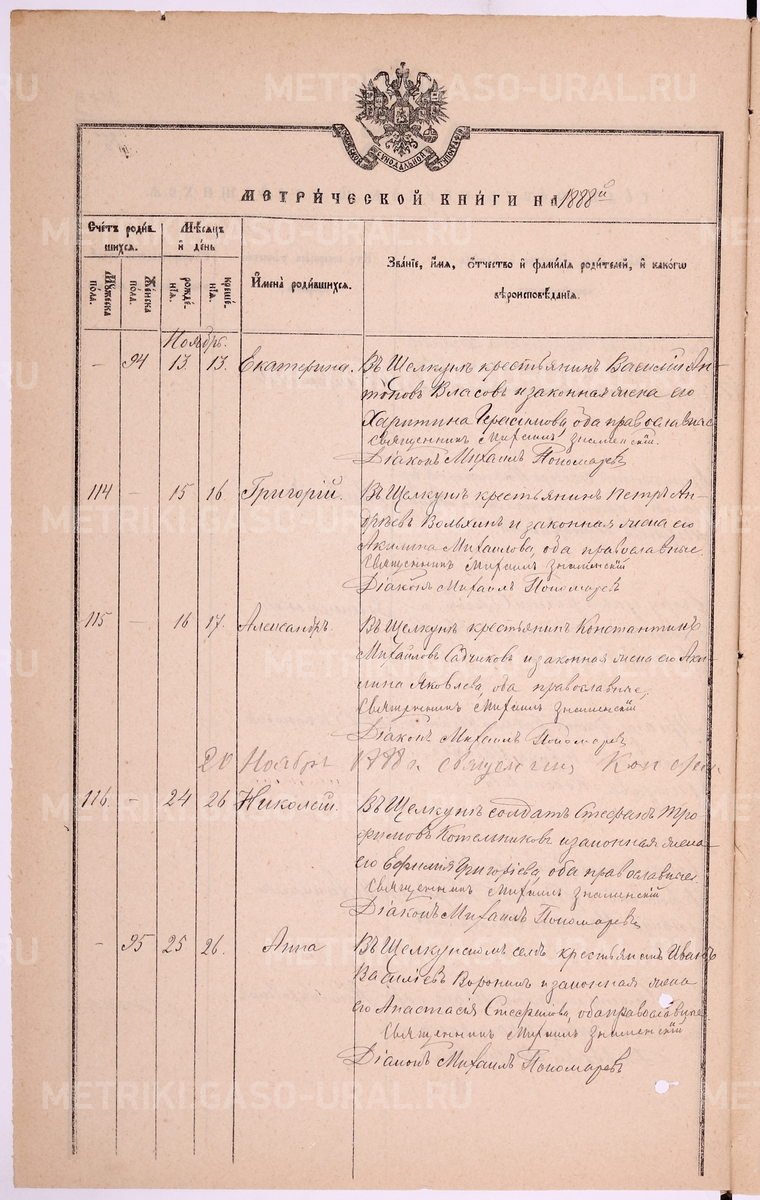 METRIKI.GASO-URAL.RU
МОСКОВСКОЙ СѴНОДАЛЬНОЙ ТѴПОГРАФІИ
МЕТРИ́ЧЕСКОЙ КНИ́ГИ НА 1888й
Сче́тъ роди́в
шихся.
Мѣ́сяцъ
и҆ де́нь
И҆мена̀ роди́вшихся.
Зва́ніе, и҆́мя, ѻ҆́тчество и҆ фами́лія роди́телей, и҆ како́гѡ
вѣроисповѣ́данія.
Му́жеска
пола.
Же́нска
по́ла.
рожде́-
нія.
креще́-
нія.
Ноябрь.
- 94 13. 13. Екатерина. Въ Щелкунѣ крестьянинъ Василій Ан-
тоновъ Власовъ и законная жена его
Харитина Герасимова, оба православные
Священникъ Михаилъ Знаменскій.
Діаконъ Михаилъ Пономаревъ
114 - 15 16. Григорій. Въ Щелкунѣ крестьянинъ Петръ Ан-
дреевъ Вольхинъ и законная жена его
Акилина Михаилова, оба православные.
Священникъ Михаилъ Знаменскій
Діаконъ Михаилъ Пономаревъ
115 - 16 17. Александръ. Въ Щелкунѣ крестьянинъ Константинъ
Михайловъ Садчиковъ и законная жена его Аки-
лина Яковлева, оба православные,
Священникъ Михаилъ Знаменскій
Діаконъ Михаилъ Пономаревъ
20 Ноября 1888 г.
116. - 24 26 Николай. Въ Щелкунѣ солдатъ Стефанъ Тро
фимовъ Котельниковъ и законная жена
его Ефимія Григоріева, оба православные.
Священникъ Михаилъ Знаменскій
Діаконъ Михаилъ Пономаревъ
- 95 25 26. Анна Въ Щелкунскомъ селѣ крестьянинъ Иванъ
Василіевъ Воронинъ и законная жена
его Анастасія Стефанова, оба православные.
Священникъ Михаилъ Знаменскій
Діаконъ Михаилъ Пономаревъ